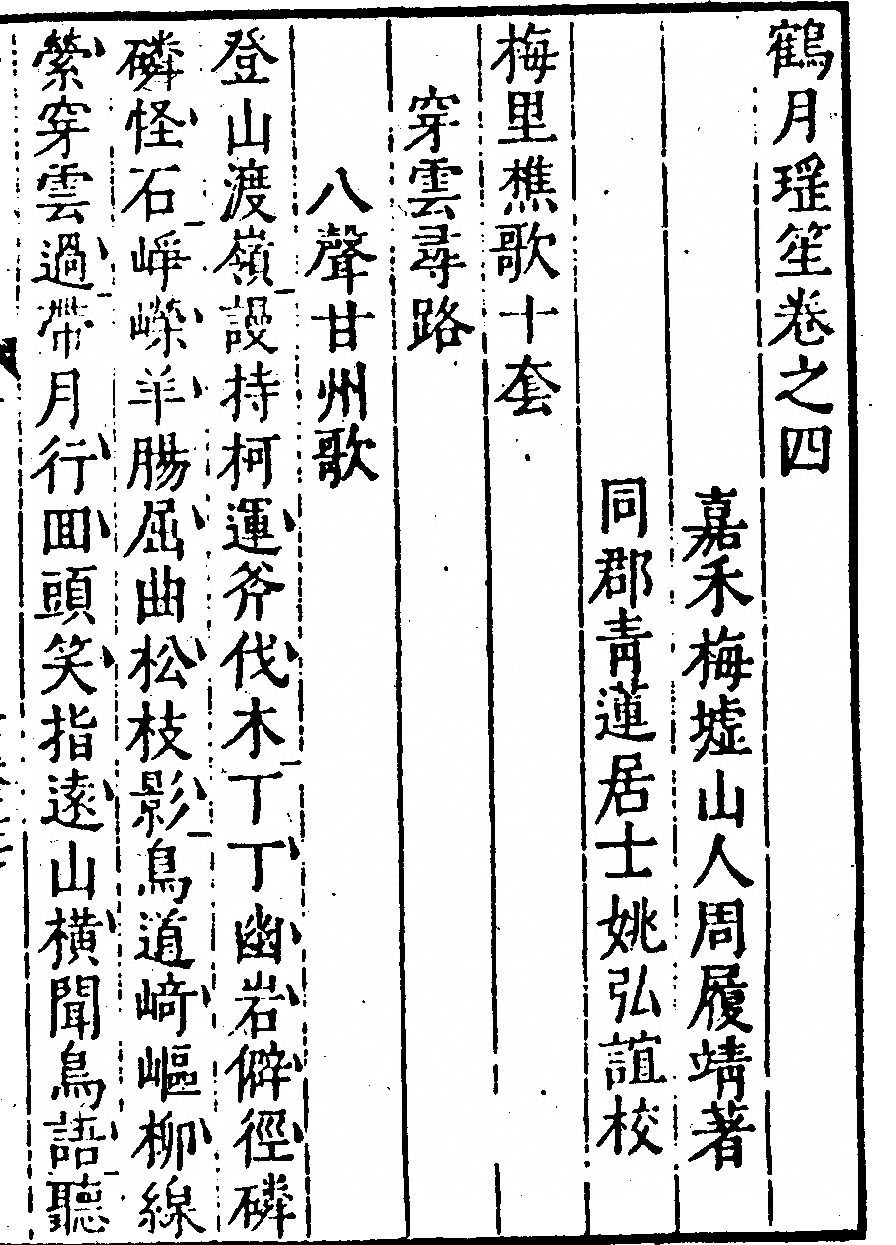 鶴月瑶笙卷之四
嘉禾梅墟山人周履靖著
同郡青蓮居士姚弘誼校
梅里樵歌十套
穿雲尋路
八聲甘州歌
登山渡嶺謾持柯運斧伐木丁丁幽岩僻徑磷
磷怪石崢嶸羊腸屈曲松枝影鳥道崎嶇柳線
縈穿雲過帶月行囬頭笑指遠山橫聞鳥語聽